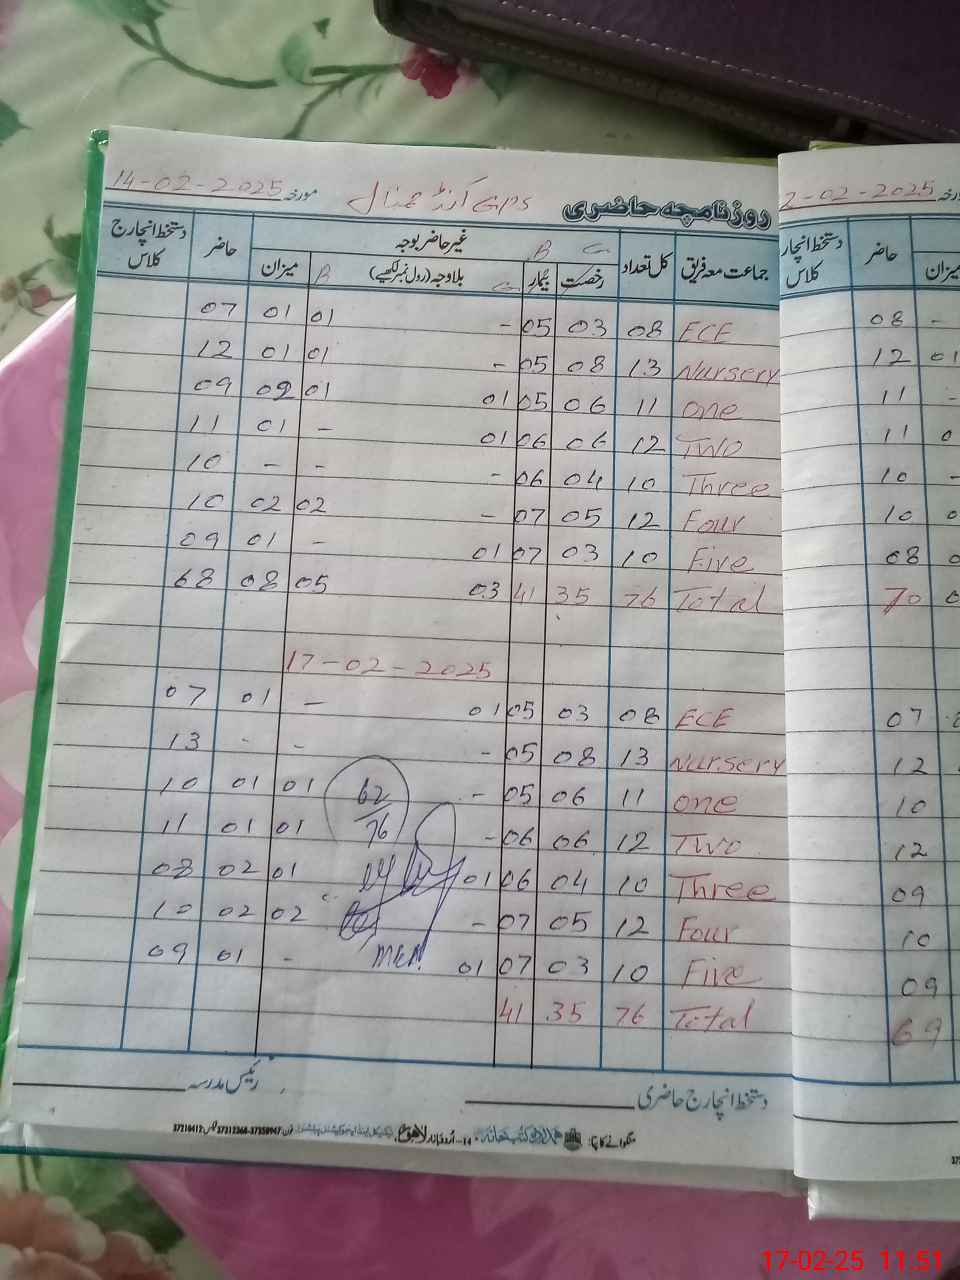 روزنامچہ حاضری GPS مورخہ 14-02-2025
جماعت معہ فریق کل تعداد G B غیر حاضر بوجہ حاضر دستخط انچارج کلاس
رخصت بیمار G بلاوجہ (رول نمبر لکھیے) B میزان
ECE 08 03 05 - 01 01 07
Nursery 13 08 05 - 01 01 12
one 11 06 05 01 01 02 09
Two 12 06 06 01 - 01 11
Three 10 04 06 - - - 10
Four 12 05 07 - 02 02 10
Five 10 03 07 01 - 01 09
Total 76 35 41 03 05 08 68
17-02-2025
ECE 08 03 05 01 - 01 07
Nursery 13 08 05 - - - 13
one 11 06 05 - 01 01 10
Two 12 06 06 - 01 01 11
Three 10 04 06 01 01 02 08
Four 12 05 07 - 02 02 10
Five 10 03 07 01 - 01 09
Total 76 35 41
62
76
دستخط انچارج حاضری رئیس مدرسہ
منگوانے کا پتہ: 14-اردو بازار لاہور
2-02-2025
دستخط انچارج کلاس حاضر میزان
08 -
12 01
11 -
11 0
10 -
10 0
08 0
70 0
07
12
10
12
09
10
09
69
17-02-25 11:51